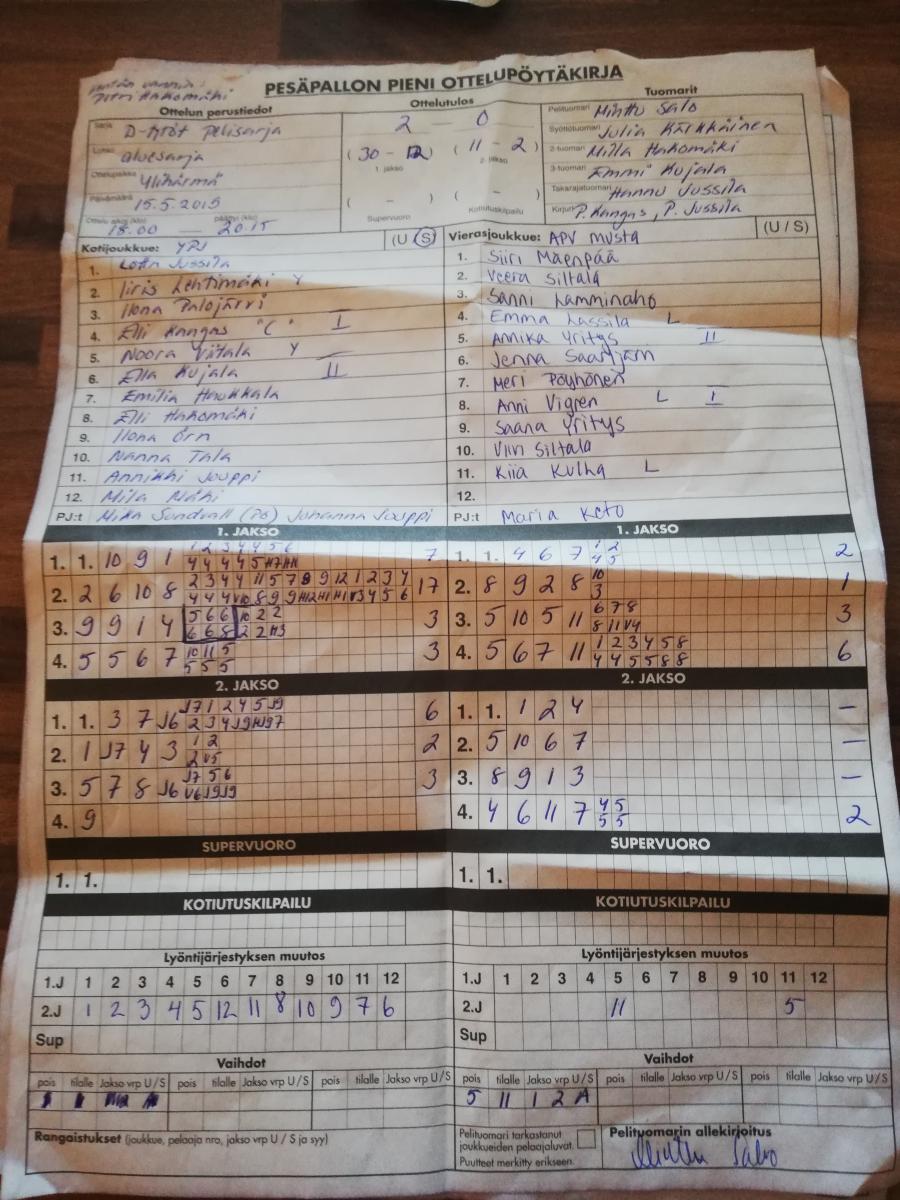 PESÄPALLON PIENI OTTELUPÖYTÄKIRJA
Ottelun perustiedot
Ottelutulos
Tuomarit
Sarja D-tytöt Pelisarja
Lohko aluesarja
Ottelupaikka Ylihärmä
Päivämäärä 15.5.2015
Ottelu alkoi (klo) päättyi (klo)
18.00 — 20.15
2 — 0
(30 - 12) (11 - 2)
1. jakso 2. jakso
( - ) ( - )
Supervuoro Kotiutuskilpailu
Pelituomari Minttu Salo
Syöttötuomari Julia Kärkkäinen
2-tuomari Milla Hakomäki
3-tuomari Emmi Kujala
Takarajatuomari Hannu Jussila
Kirjuri P. Kangas, P. Jussila
Kotijoukkue: YPJ (U S)
1. Lotta Jussila
2. Iiris Lehtimäki Y
3. Ilona Palojärvi
4. Elli Kangas "C" I
5. Noora Viitala Y
6. Ella Kujala II
7. Emilia Haukkala
8. Elli Hakomäki
9. Ilona Örn
10. Nanna Tala
11. Annikki Jouppi
12. Mila Nähi
PJ:t Mika Sundvall (78) Johanna Jouppi
Vierasjoukkue: APV musta (U / S)
1. Siiri Mäenpää
2. Veera Siltala
3. Sanni Lamminaho
4. Emma Lassila L
5. Annika Yritys II
6. Jenna Saarijärvi
7. Meri Pöyhönen
8. Anni Vigren L I
9. Saana Yritys
10. Viivi Siltala
11. Kiia Kulha L
12.
PJ:t Maria Keto
1. JAKSO
1. 1. 10 9 1 7
2. 2 6 10 8 17
3. 9 9 1 4 3
4. 5 5 6 7 3
1. JAKSO
1. 1. 4 6 7 2
2. 8 9 2 8 1
3. 5 10 5 11 3
4. 5 6 7 11 6
2. JAKSO
1. 1. 3 7 J6 6
2. 1 J7 4 3 2
3. 5 7 8 J6 3
4. 9
2. JAKSO
1. 1. 1 2 4 —
2. 5 10 6 7 —
3. 8 9 1 3 —
4. 4 6 11 7 2
SUPERVUORO
1. 1.
SUPERVUORO
1. 1.
KOTIUTUSKILPAILU
KOTIUTUSKILPAILU
Lyöntijärjestyksen muutos
1.J 1 2 3 4 5 6 7 8 9 10 11 12
2.J 1 2 3 4 5 12 11 8 10 9 7 6
Sup
Lyöntijärjestyksen muutos
1.J 1 2 3 4 5 6 7 8 9 10 11 12
2.J 11 5
Sup
Vaihdot
pois tilalle Jakso vrp U / S pois tilalle Jakso vrp U / S pois tilalle Jakso vrp U / S
Vaihdot
pois tilalle Jakso vrp U / S pois tilalle Jakso vrp U / S pois tilalle Jakso vrp U / S
5 11 1 2 A
Rangaistukset (joukkue, pelaaja nro, jakso vrp U / S ja syy)
Pelituomari tarkastanut
joukkueiden pelaajaluvat.
Puutteet merkitty erikseen.
Pelituomarin allekirjoitus
Minttu Salo